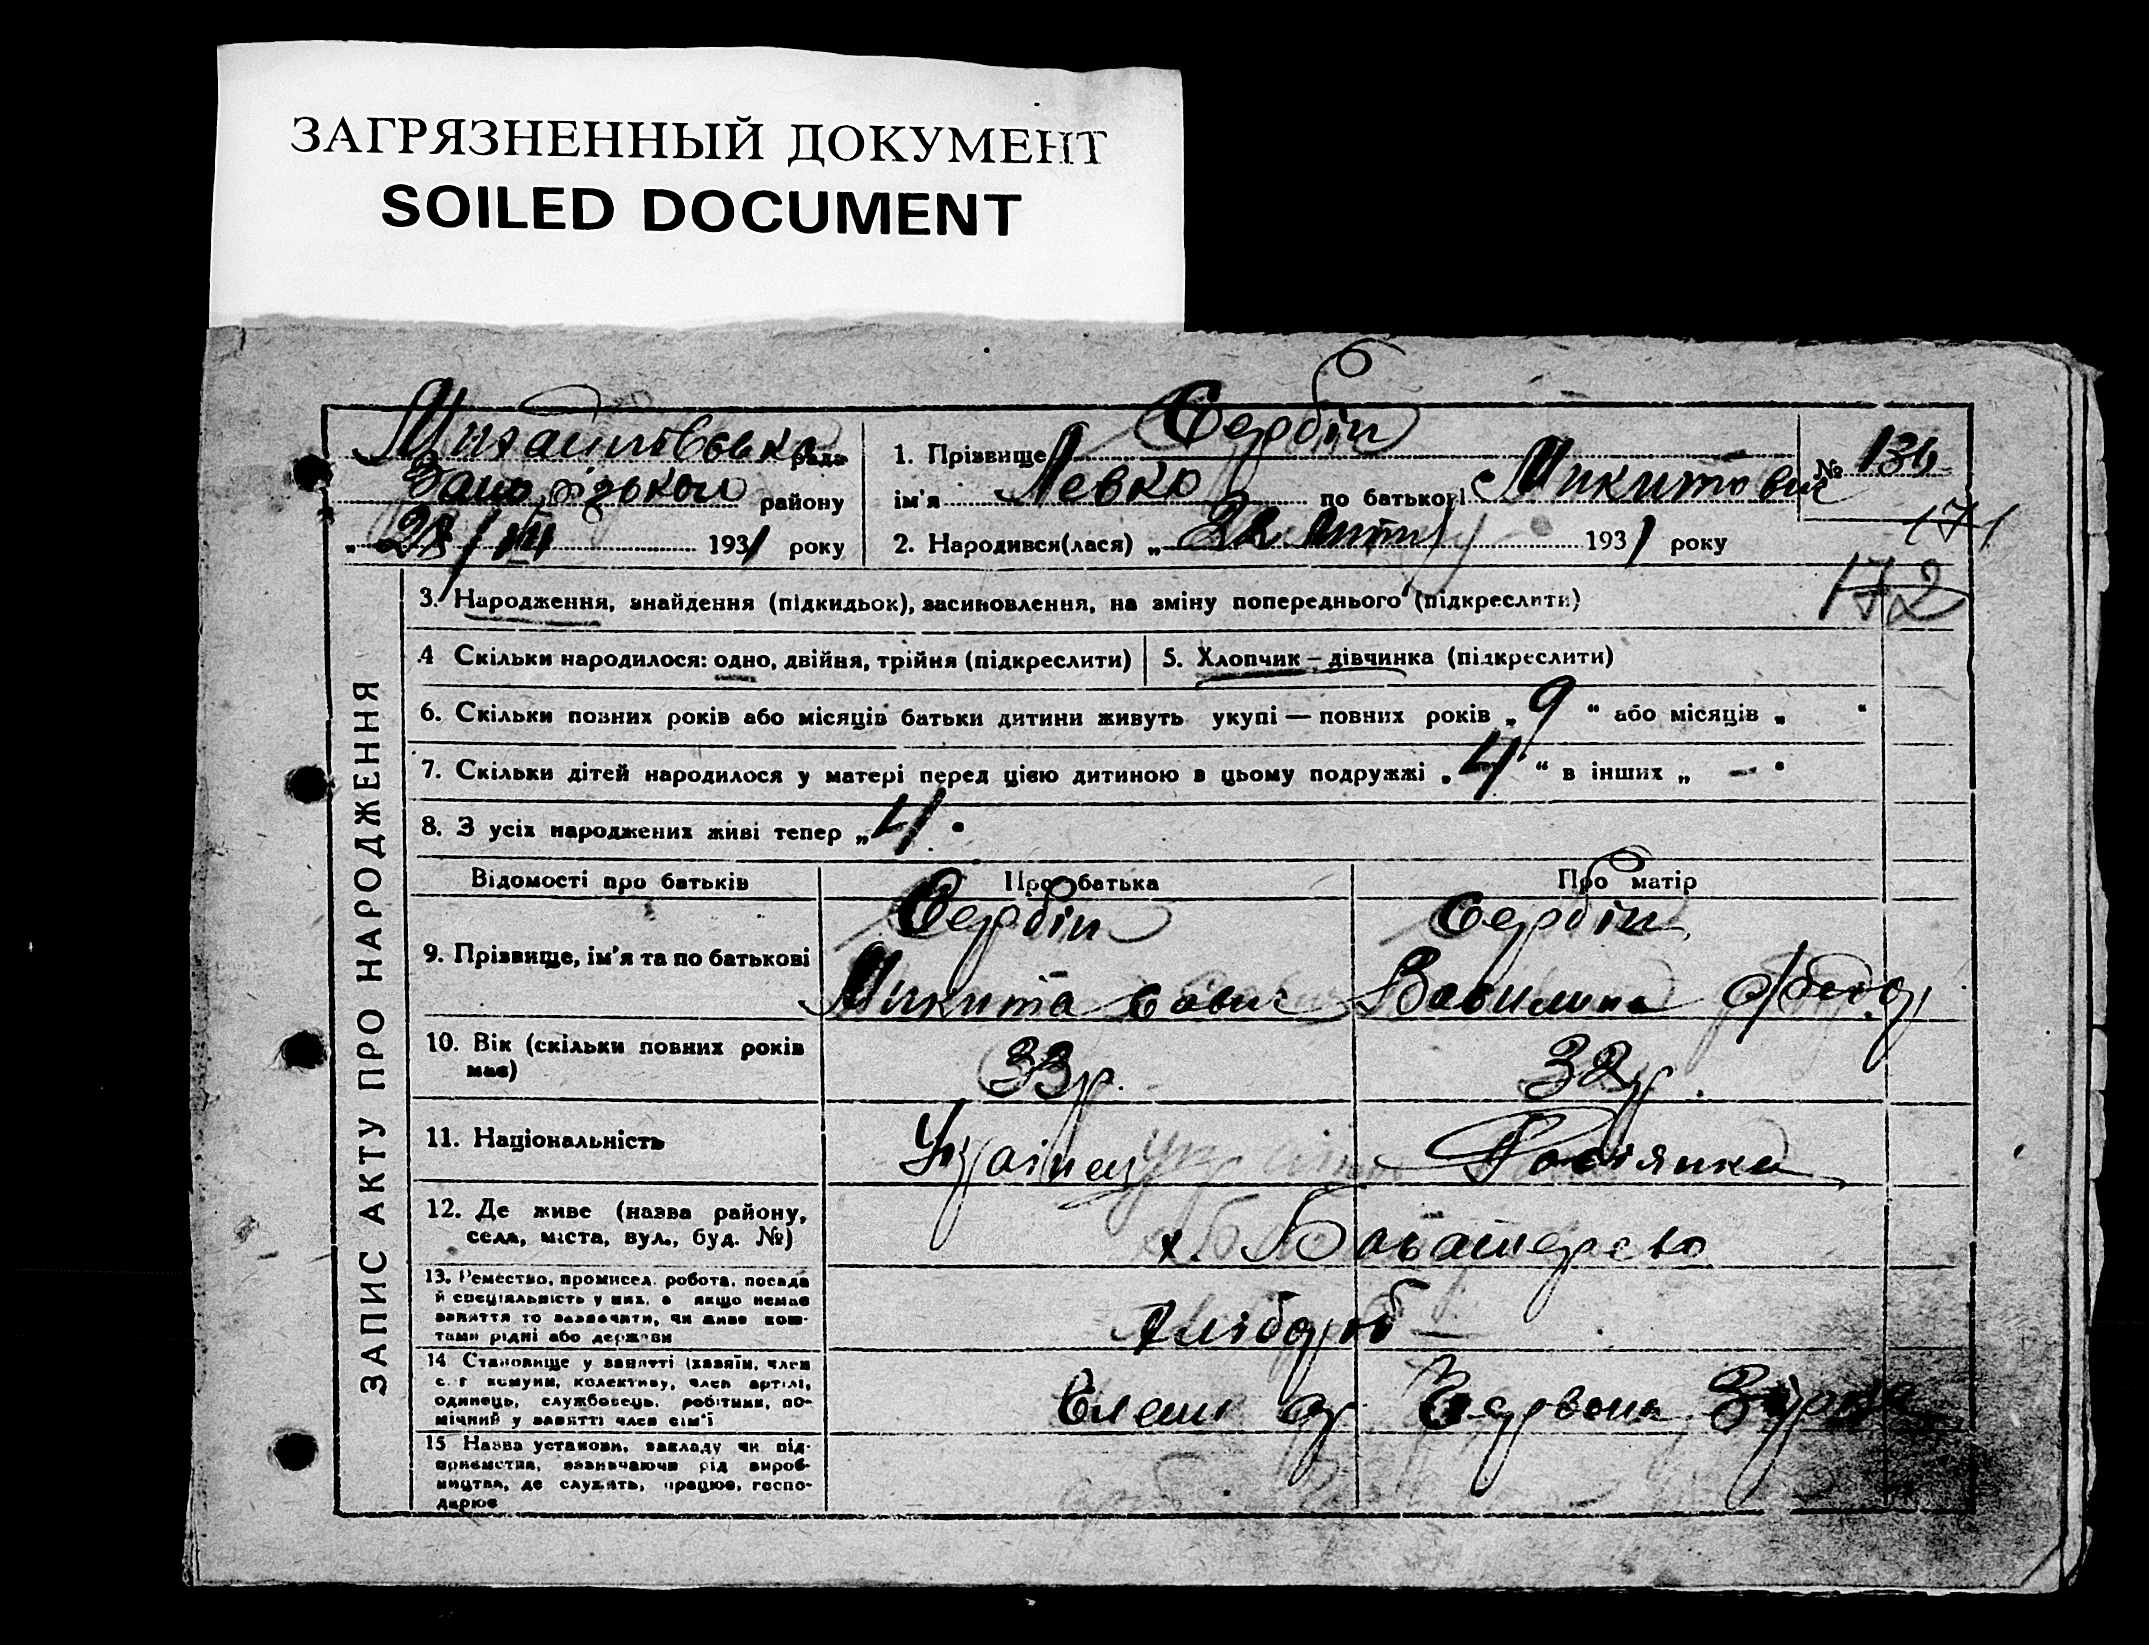 ЗАГРЯЗНЕННЫЙ ДОКУМЕНТ
SOILED DOCUMENT
ЗАПИС АКТУ ПРО НАРОДЖЕННЯ
Михайлівська рада
району
193 1 року
1. Прізвище Сербін
ім'я Левко по батькові Микитович
№ 136
2. Народився(лася) „ 22 193 1 року
171
172
3. Народження, знайдення (підкидьок), засиновлення, на зміну попереднього (підкреслити)
4 Скільки народилося: одно, двійня, трійня (підкреслити)
5. Хлопчик – дівчинка (підкреслити)
6. Скільки повних років або місяців батьки дитини живуть укупі — повних років „ 9 “ або місяців „ “
7. Скільки дітей народилося у матері перед цією дитиною в цьому подружжі „ 4 “ в інших „ – “
8. З усіх народжених живі тепер „ 4 “
Відомості про батьків Про батька Про матір
9. Прізвище, ім'я та по батькові
Сербін Сербін
Микита Савич
10. Вік (скільки повних років має) 33 р. 32 р.
11. Національність Українец Росіянка
12. Де живе (назва району, села, міста, вул., буд. №)
х.
13. Ремество, промисел, робота, посада й спеціяльність у них, а якщо немає заняття то зазначити, чи живе коштами рідні або держави
Хлібороб –
14 Становище у занятті (хазяїн, член с. г комуни, колективу, член артілі, одинець, службовець, робітник, помічний у занятті член сім'ї
Член ар Червона Зірка
15 Назва установи, закладу чи підприємства, зазначаючи рід виробництва, де служать, працює, господарює